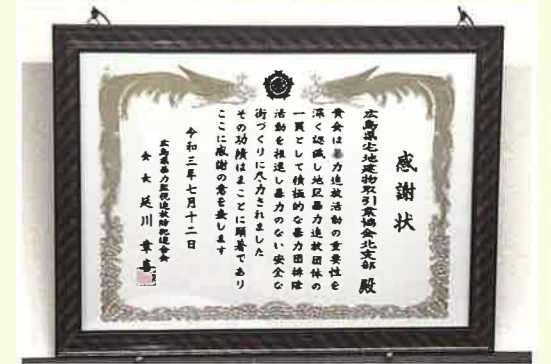 感謝状
広島県宅地建物取引業協会北支部 殿
貴会は暴力追放活動の重要性を
深く認識し地区暴力追放団体の
一員として積極的な暴力団排除
活動を推進し暴力のない安全な
街づくりに尽力されました
その功績はまことに顕著であり
ここに感謝の意を表します
令和三年七月十二日
広島県暴力監視追放防犯連合会
会長 延川章喜